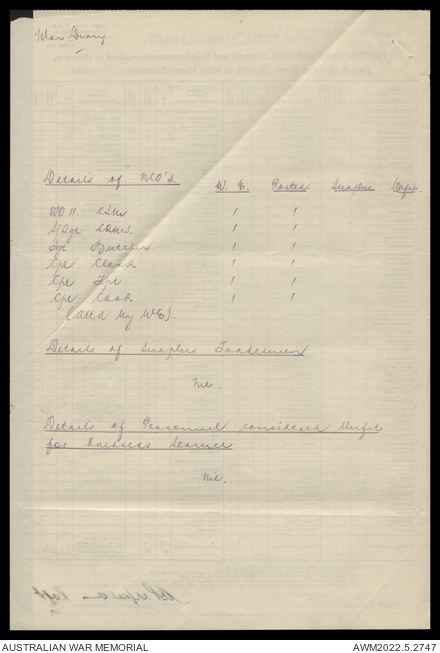 War Diary.
Details of NCO's. W. E. Posted Surplus Defic.
WO II. CSM 1 1
S/Sgt CQMS. 1 1
Sgt Butcher 1 1
Cpl Clerk 1 1
Cpl 1 1
Cpl Cook 1 1
(attd by WE).
Details of Surplus Tradesmen
Nil.
Details of Personnel considered Unfit
for Overseas Service
Nil.
AUSTRALIAN WAR MEMORIAL AWM2022.5.2747